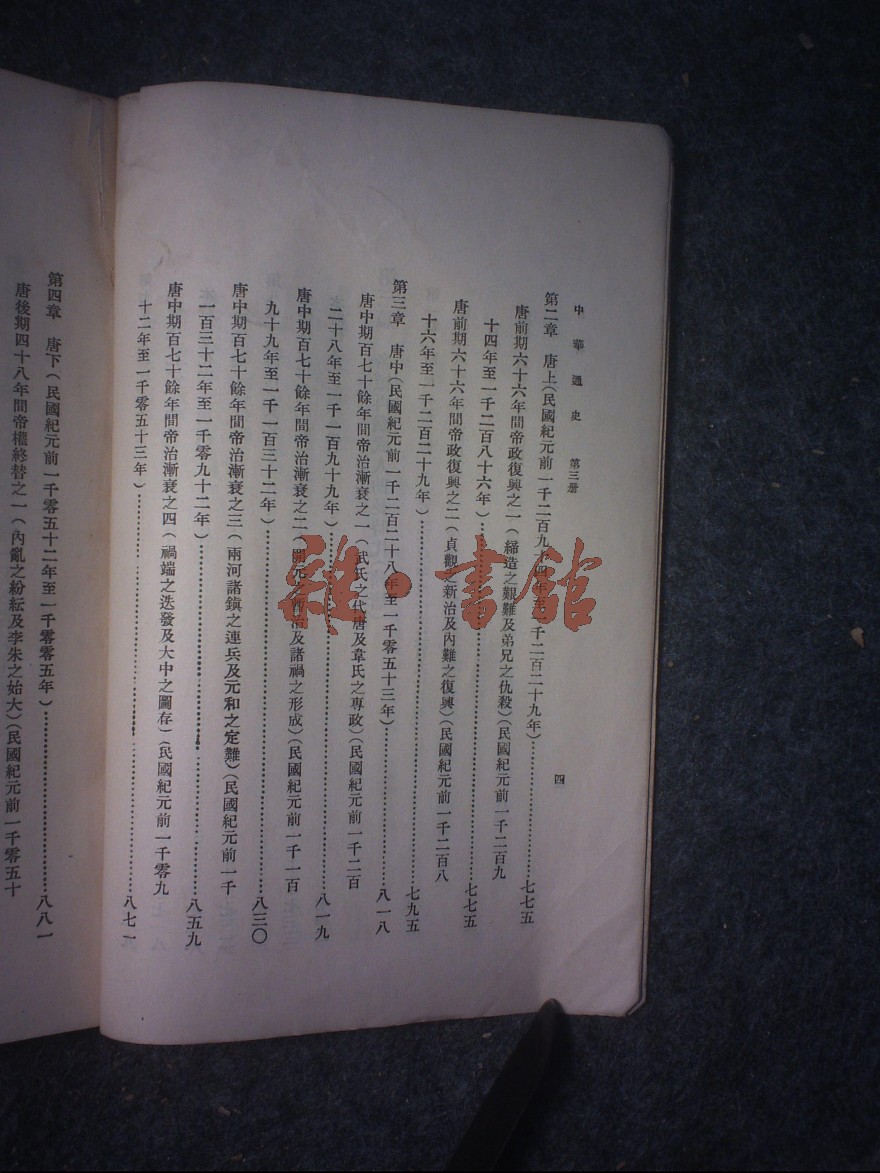 中華通史 第三册 四
第二章 唐上(民國紀元前一千二百九十四年至一千二百二十九年)……七七五
唐前期六十六年間帝政復興之一(締造之艱難及弟兄之仇殺)(民國紀元前一千二百九
十四年至一千二百八十六年)……七七五
唐前期六十六年間帝政復興之二(貞觀之新治及內難之復興)(民國紀元前一千二百八
十六年至一千二百二十九年)……七九五
第三章 唐中(民國紀元前一千二百二十八年至一千零五十三年)……八一八
唐中期百七十餘年間帝治漸衰之一(武氏之代唐及韋氏之專政)(民國紀元前一千二百
二十八年至一千一百九十九年)……八一九
唐中期百七十餘年間帝治漸衰之二(開元之暫治及諸禍之形成)(民國紀元前一千一百
九十九年至一千一百三十二年)……八三〇
唐中期百七十餘年間帝治漸衰之三(兩河諸鎮之連兵及元和之定難)(民國紀元前一千
一百三十二年至一千零九十二年)……八五九
唐中期百七十餘年間帝治漸衰之四(禍端之迭發及大中之圖存)(民國紀元前一千零九
十二年至一千零五十三年)……八七一
第四章 唐下(民國紀元前一千零五十二年至一千零零五年)……八八一
唐後期四十八年間帝權終替之一(內亂之紛紜及李朱之始大)(民國紀元前一千零五十
雜·書館